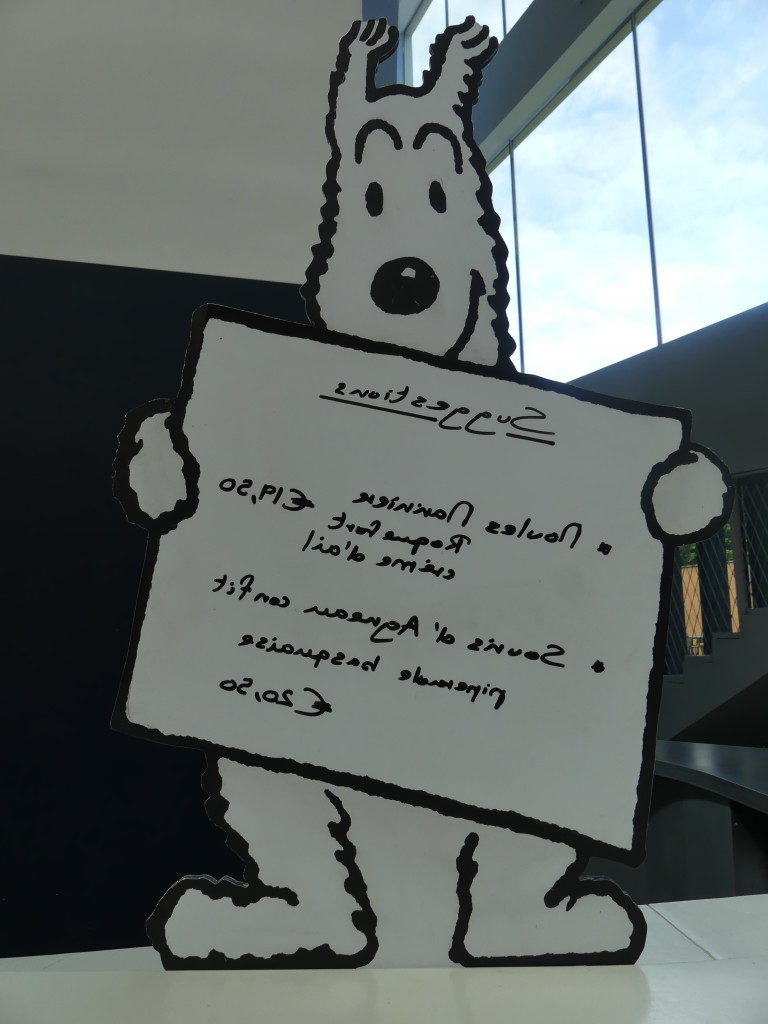 Suggestions
• Moules Marinière €19,50
Roquefort
crème d'ail
• Souris d'Agneau confit
piperade basquaise
€20,50